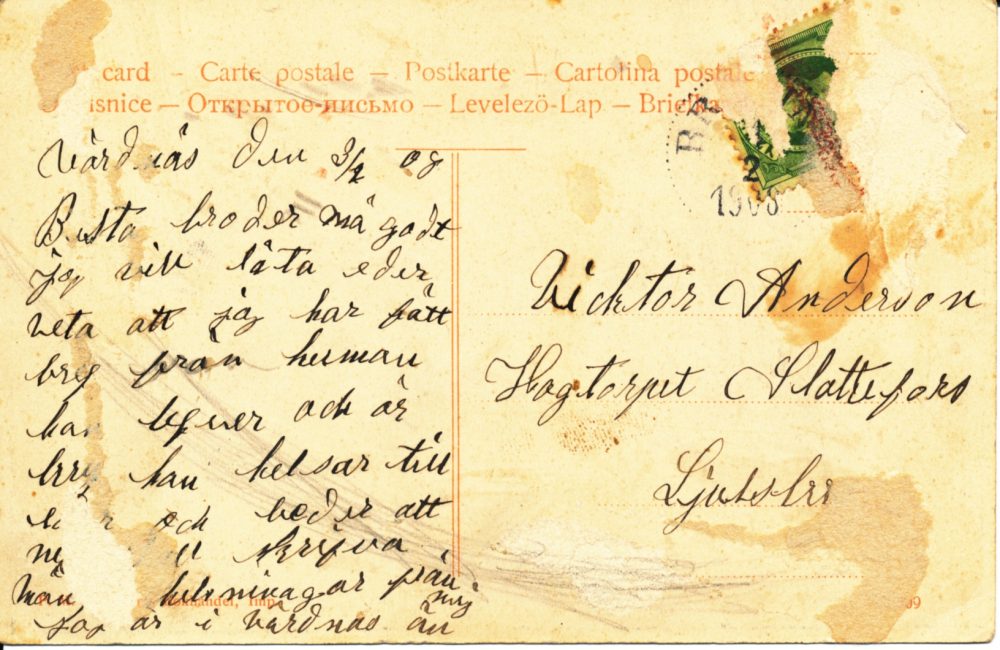 card – Carte postale – Postkarte – Cartolina postale
snice – Открытое-письмо – Levelezö-Lap – Briefka
BR
2
1908
Värdnäs den 3/2 08
Bästa broder må godt
jag vill låta eder
veta att jag har fått
bref från herman
han lefver och är
han helsar till
och beder att
skrifva
Män helsningar från mig
Jag är i värdnäs än
Vicktor Anderson
Hagtorpet Slattefors
Ljutsbro
09